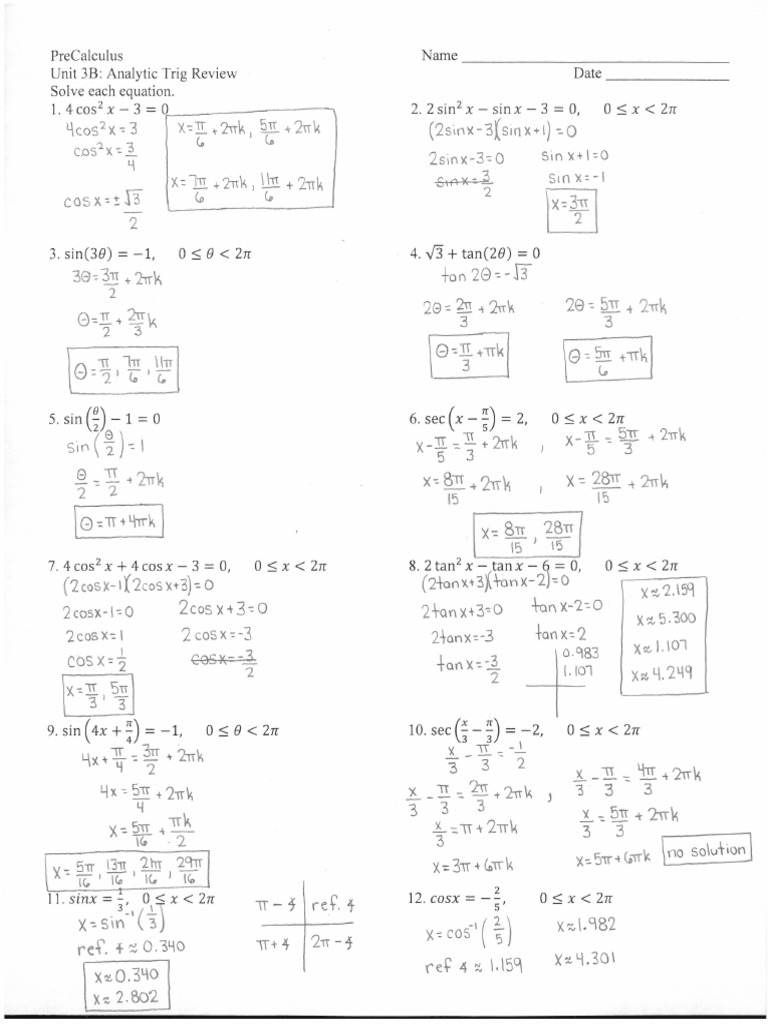 PreCalculus
Name
Unit 3B: Analytic Trig Review
Date
Solve each equation.
1. 4 cos² x − 3 = 0
4cos²x = 3
cos²x = 3/4
cos x = ± √3/2
x = π/6 + 2πk, 5π/6 + 2πk
x = 7π/6 + 2πk, 11π/6 + 2πk
2. 2 sin² x − sin x − 3 = 0, 0 ≤ x < 2π
(2sinx-3)(sinx+1) = 0
2sinx-3=0 sin x+1=0
sinx = 3/2 sin x = -1
x = 3π/2
3. sin(3θ) = −1, 0 ≤ θ < 2π
3θ = 3π/2 + 2πk
θ = π/2 + 2π/3 k
θ = π/2, 7π/6, 11π/6
4. √3 + tan(2θ) = 0
tan 2θ = -√3
2θ = 2π/3 + 2πk 2θ = 5π/3 + 2πk
θ = π/3 + πk θ = 5π/6 + πk
5. sin (θ/2) − 1 = 0
sin (θ/2) = 1
θ/2 = π/2 + 2πk
θ = π + 4πk
6. sec (x − π/5) = 2, 0 ≤ x < 2π
x - π/5 = π/3 + 2πk , x - π/5 = 5π/3 + 2πk
x = 8π/15 + 2πk , x = 28π/15 + 2πk
x = 8π/15, 28π/15
7. 4 cos² x + 4 cos x − 3 = 0, 0 ≤ x < 2π
(2cosx-1)(2cosx+3) = 0
2cosx-1=0 2cosx+3=0
2cosx=1 2cosx=-3
cosx = 1/2 cosx = -3/2
x = π/3, 5π/3
8. 2 tan² x − tan x − 6 = 0, 0 ≤ x < 2π
(2tanx+3)(tanx-2)=0
2tanx+3=0 tanx-2=0
2tanx=-3 tanx=2
tanx = -3/2
0.983
1.107
x≈2.159
x≈5.300
x≈1.107
x≈4.249
9. sin (4x + π/4) = −1, 0 ≤ θ < 2π
4x + π/4 = 3π/2 + 2πk
4x = 5π/4 + 2πk
x = 5π/16 + πk/2
x = 5π/16, 13π/16, 21π/16, 29π/16
10. sec (x/3 − π/3) = −2, 0 ≤ x < 2π
x/3 - π/3 = -1/2
x/3 - π/3 = 2π/3 + 2πk , x/3 - π/3 = 4π/3 + 2πk
x/3 = π + 2πk x/3 = 5π/3 + 2πk
x = 3π + 6πk x = 5π + 6πk
no solution
11. sinx = 1/3, 0 ≤ x < 2π
x = sin⁻¹ (1/3)
ref. ∡ ≈ 0.340
x≈0.340
x≈2.802
π - ∡ ref. ∡
π + ∡ 2π - ∡
12. cosx = −2/5, 0 ≤ x < 2π
x = cos⁻¹ (2/5)
ref ∡ ≈ 1.159
x≈1.982
x≈4.301